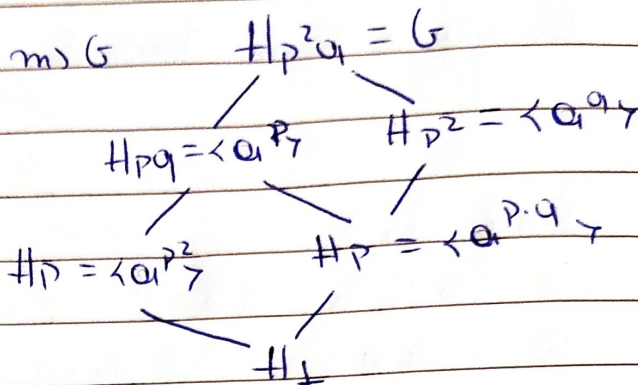 m) G H_{p²q} = G
H_{pq} = <a^p> H_{p²} = <a^q>
H_p = <a^{p²}> H_p = <a^{p·q}>
H_1